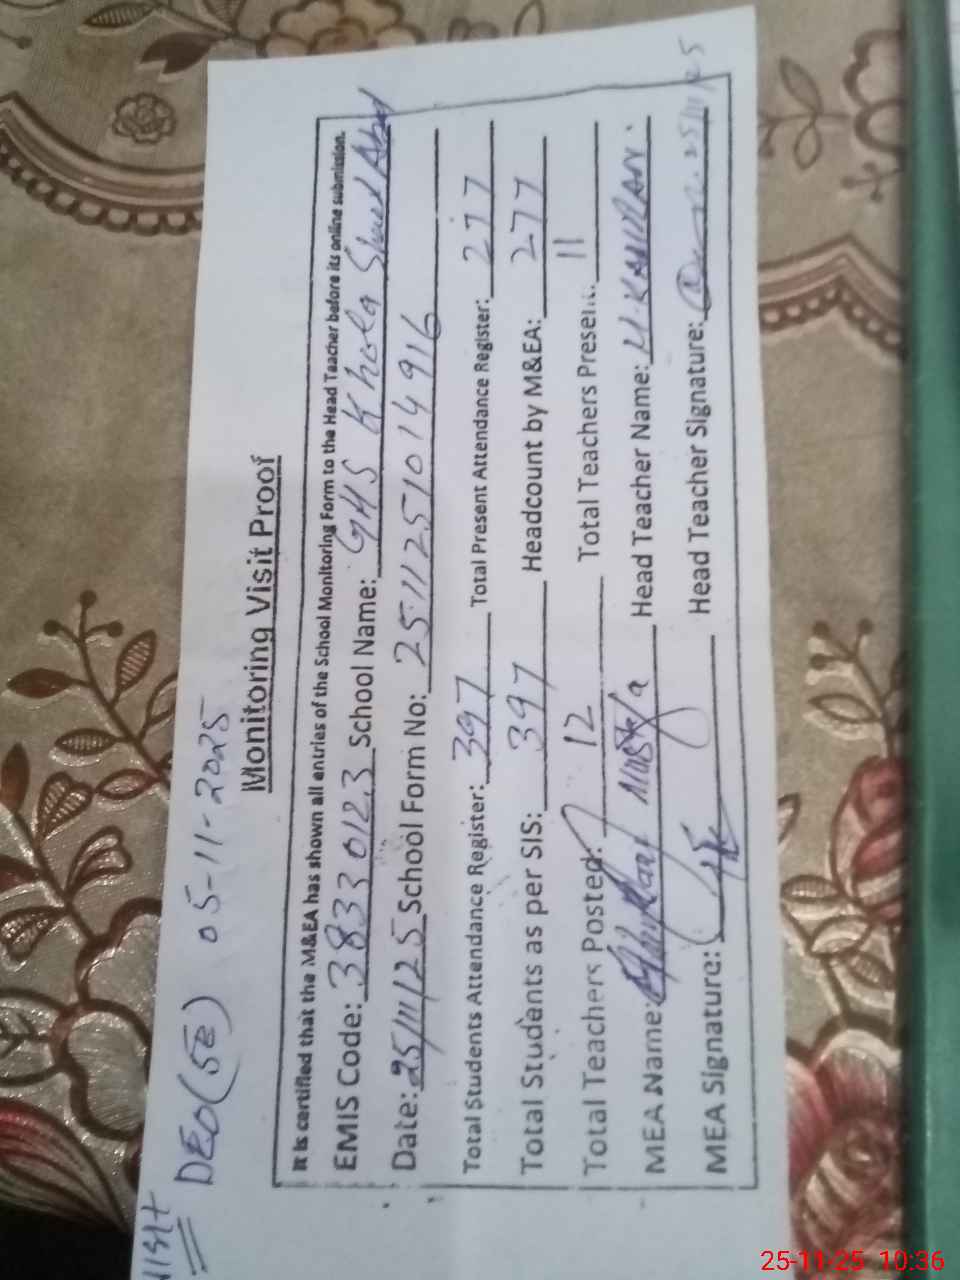 Visit DEO(SE) 05-11-2025
Monitoring Visit Proof
It is certified that the M&EA has shown all entries of the School Monitoring Form to the Head Teacher before its online submission.
EMIS Code: 38330123 School Name: GHS Khola Shart Abad
Date: 25/11/25 School Form No: 251125101 4916
Total Students Attendance Register: 397 Total Present Attendance Register: 277
Total Students as per SIS: 397 Headcount by M&EA: 277
Total Teachers Posted: 12 Total Teachers Present: 11
MEA Name: Mustafa Head Teacher Name: M. KAMRAN.
MEA Signature: Head Teacher Signature: 25/11/25
25-11-25 10:36